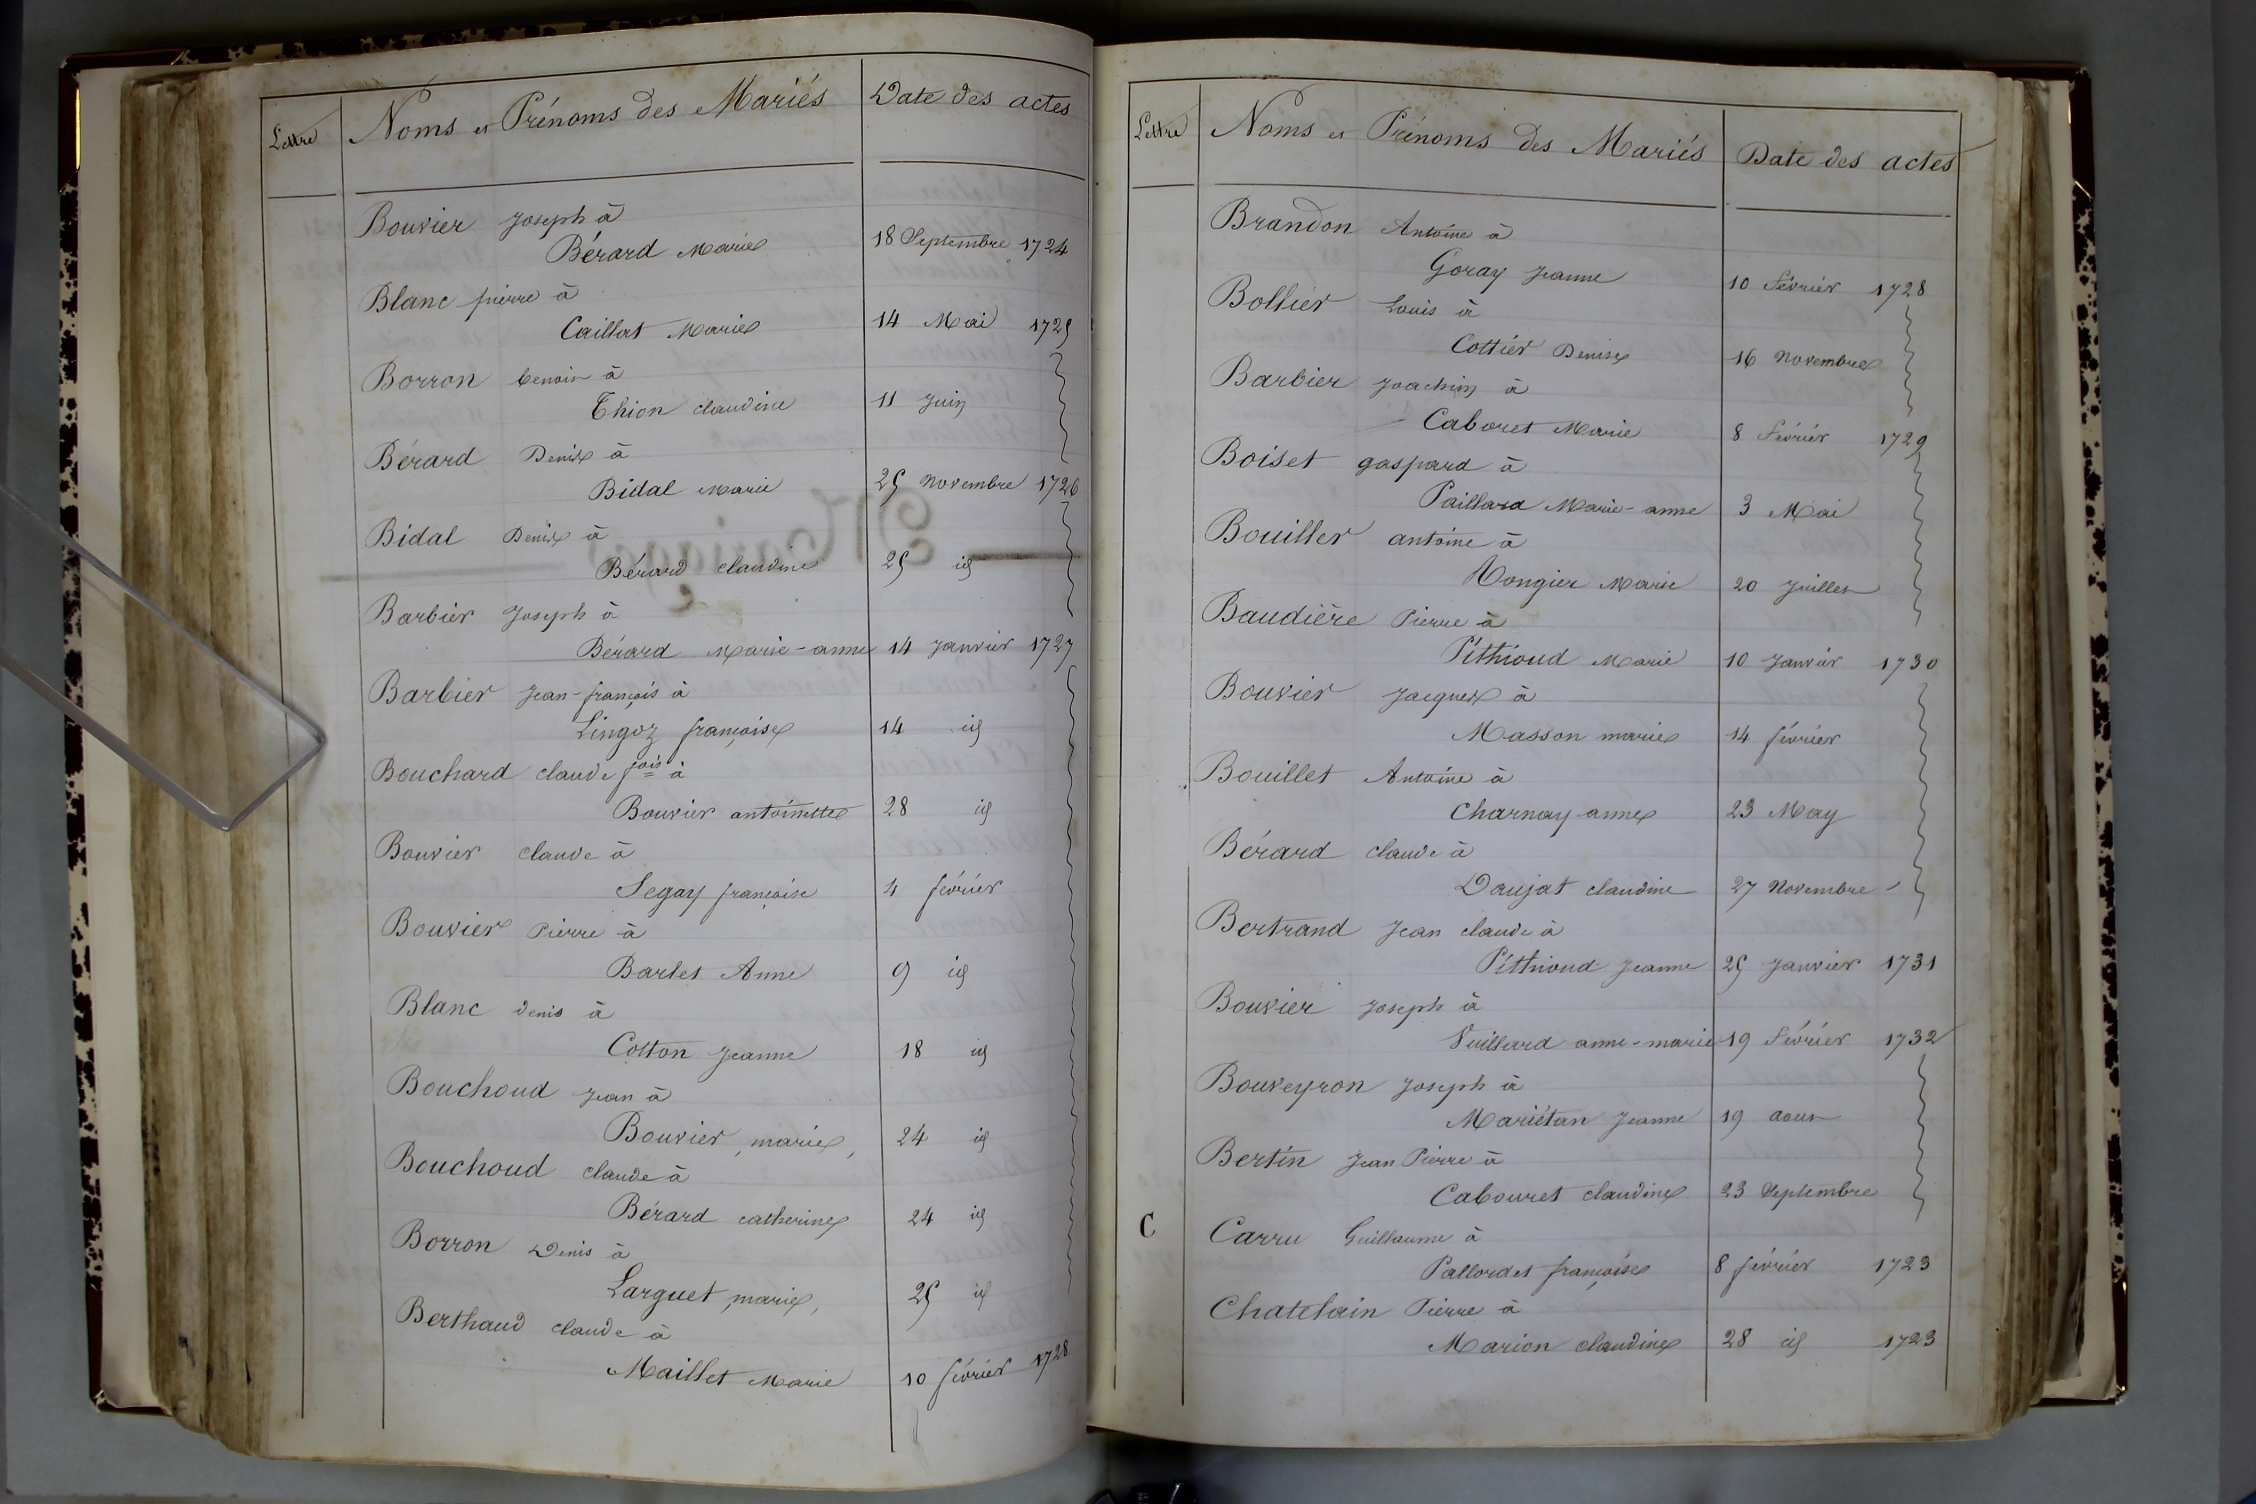 Lettre Noms et Prénoms des Mariés Date des actes
Bouvier Joseph à
Bérard Marie 18 Septembre 1724
Blanc pierre à
Caillat Marie 14 Mai 1725
Borron benoit à
Thion claudine 11 Juin
Bérard Denis à
Bidal Marie 25 Novembre 1726
Bidal Denis à
Bérard claudine 25 id
Barbier Joseph à
Bérard Marie-anne 14 Janvier 1727
Barbier Jean-françois à
Lingoz françoise 14 id
Bouchard claude fois à
Bouvier antoinette 28 id
Bouvier claude à
Segay françoise 4 février
Bouvier Pierre à
Barlet Anne 9 id
Blanc denis à
Cotton Jeanne 18 id
Bouchoud Jean à
Bouvier, marie, 24 id
Bouchoud claude à
Bérard catherine 24 id
Borron Denis à
Larguet, marie, 25 id
Berthaud claude à
Maillet Marie 10 février 1728
Lettre Noms et Prénoms des Mariés Date des actes
Brandon Antoine à
Goray Jeanne 10 Février 1728
Bollier Louis à
Cottier Denise 16 Novembre
Barbier Joachim à
Caboret Marie 8 Février 1729
Boiset gaspard à
Paillard Marie-anne 3 Mai
Bouiller antoine à
Rongier Marie 20 Juillet
Baudière Pierre à
Péthioud Marie 10 Janvier 1730
Bouvier Jacques à
Masson marie 14 février
Bouillet Antoine à
Charnay anne 23 May
Bérard claude à
Daujat claudine 27 Novembre
Bertrand Jean claude à
Péthioud Jeanne 25 Janvier 1731
Bouvier Joseph à
Vuillard anne-marie 19 Février 1732
Bouveyron Joseph à
Mariétan Jeanne 19 aout
Bertin Jean Pierre à
Cabouret claudine 23 Septembre
C Carru Guillaume à
Pallordet françoise 8 février 1723
Chatelain Pierre à
Marion claudine 28 id 1723